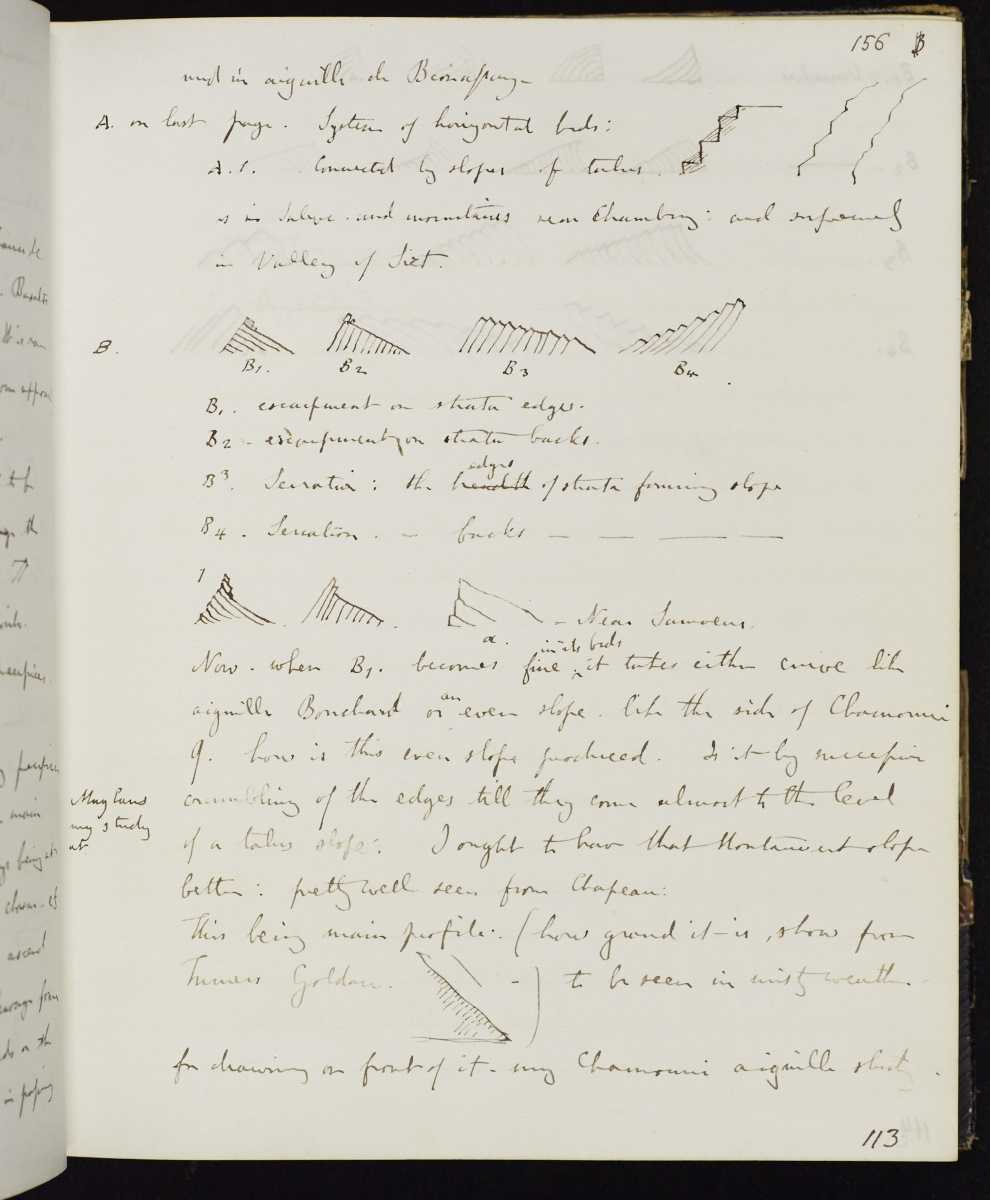 156 B
in aiguille de Bionassay -
A. on last page. System of horizontal beds:
A.1. Connected by slopes of talus.
is in Saleve. and mountains near Chambery: and supremely
in Valley of Sixt.
B.
B1. B2 B3 B4
B1. escarpment on strata edges.
B2 - escarpment on strata backs.
B3. Serration: the breadth edges of strata forming slope
B4. Serration. - backs - - - -
1
a. - Near Samoens.
Now. when B1. becomes fine, in its beds it takes either curve like
aiguille Bouchard or an even slope. like the side of Chamouni
Q. how is this even slope produced. Is it by successive
crumbling of the edges till they come almost to the level
of a talus slope:. I ought to have that Montanvert slope
better: pretty well seen from Chapeau:
Maglans
my study
at
This being main profile:. (how grand it is, show from
Turners Goldau. - ) to be seen in misty weather. -
for drawing on front of it - my Chamouni aiguille study.
113